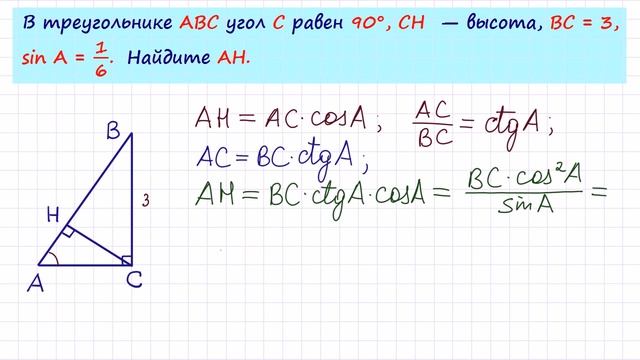 В треугольнике ABC угол C равен 90°, CH — высота, BC = 3,
sin A = 1/6. Найдите AH.
AH = AC·cosA; AC/BC = ctgA;
AC = BC·ctgA;
AH = BC·ctgA·cosA = BC·cos²A/sinA =
B
3
H
A
C